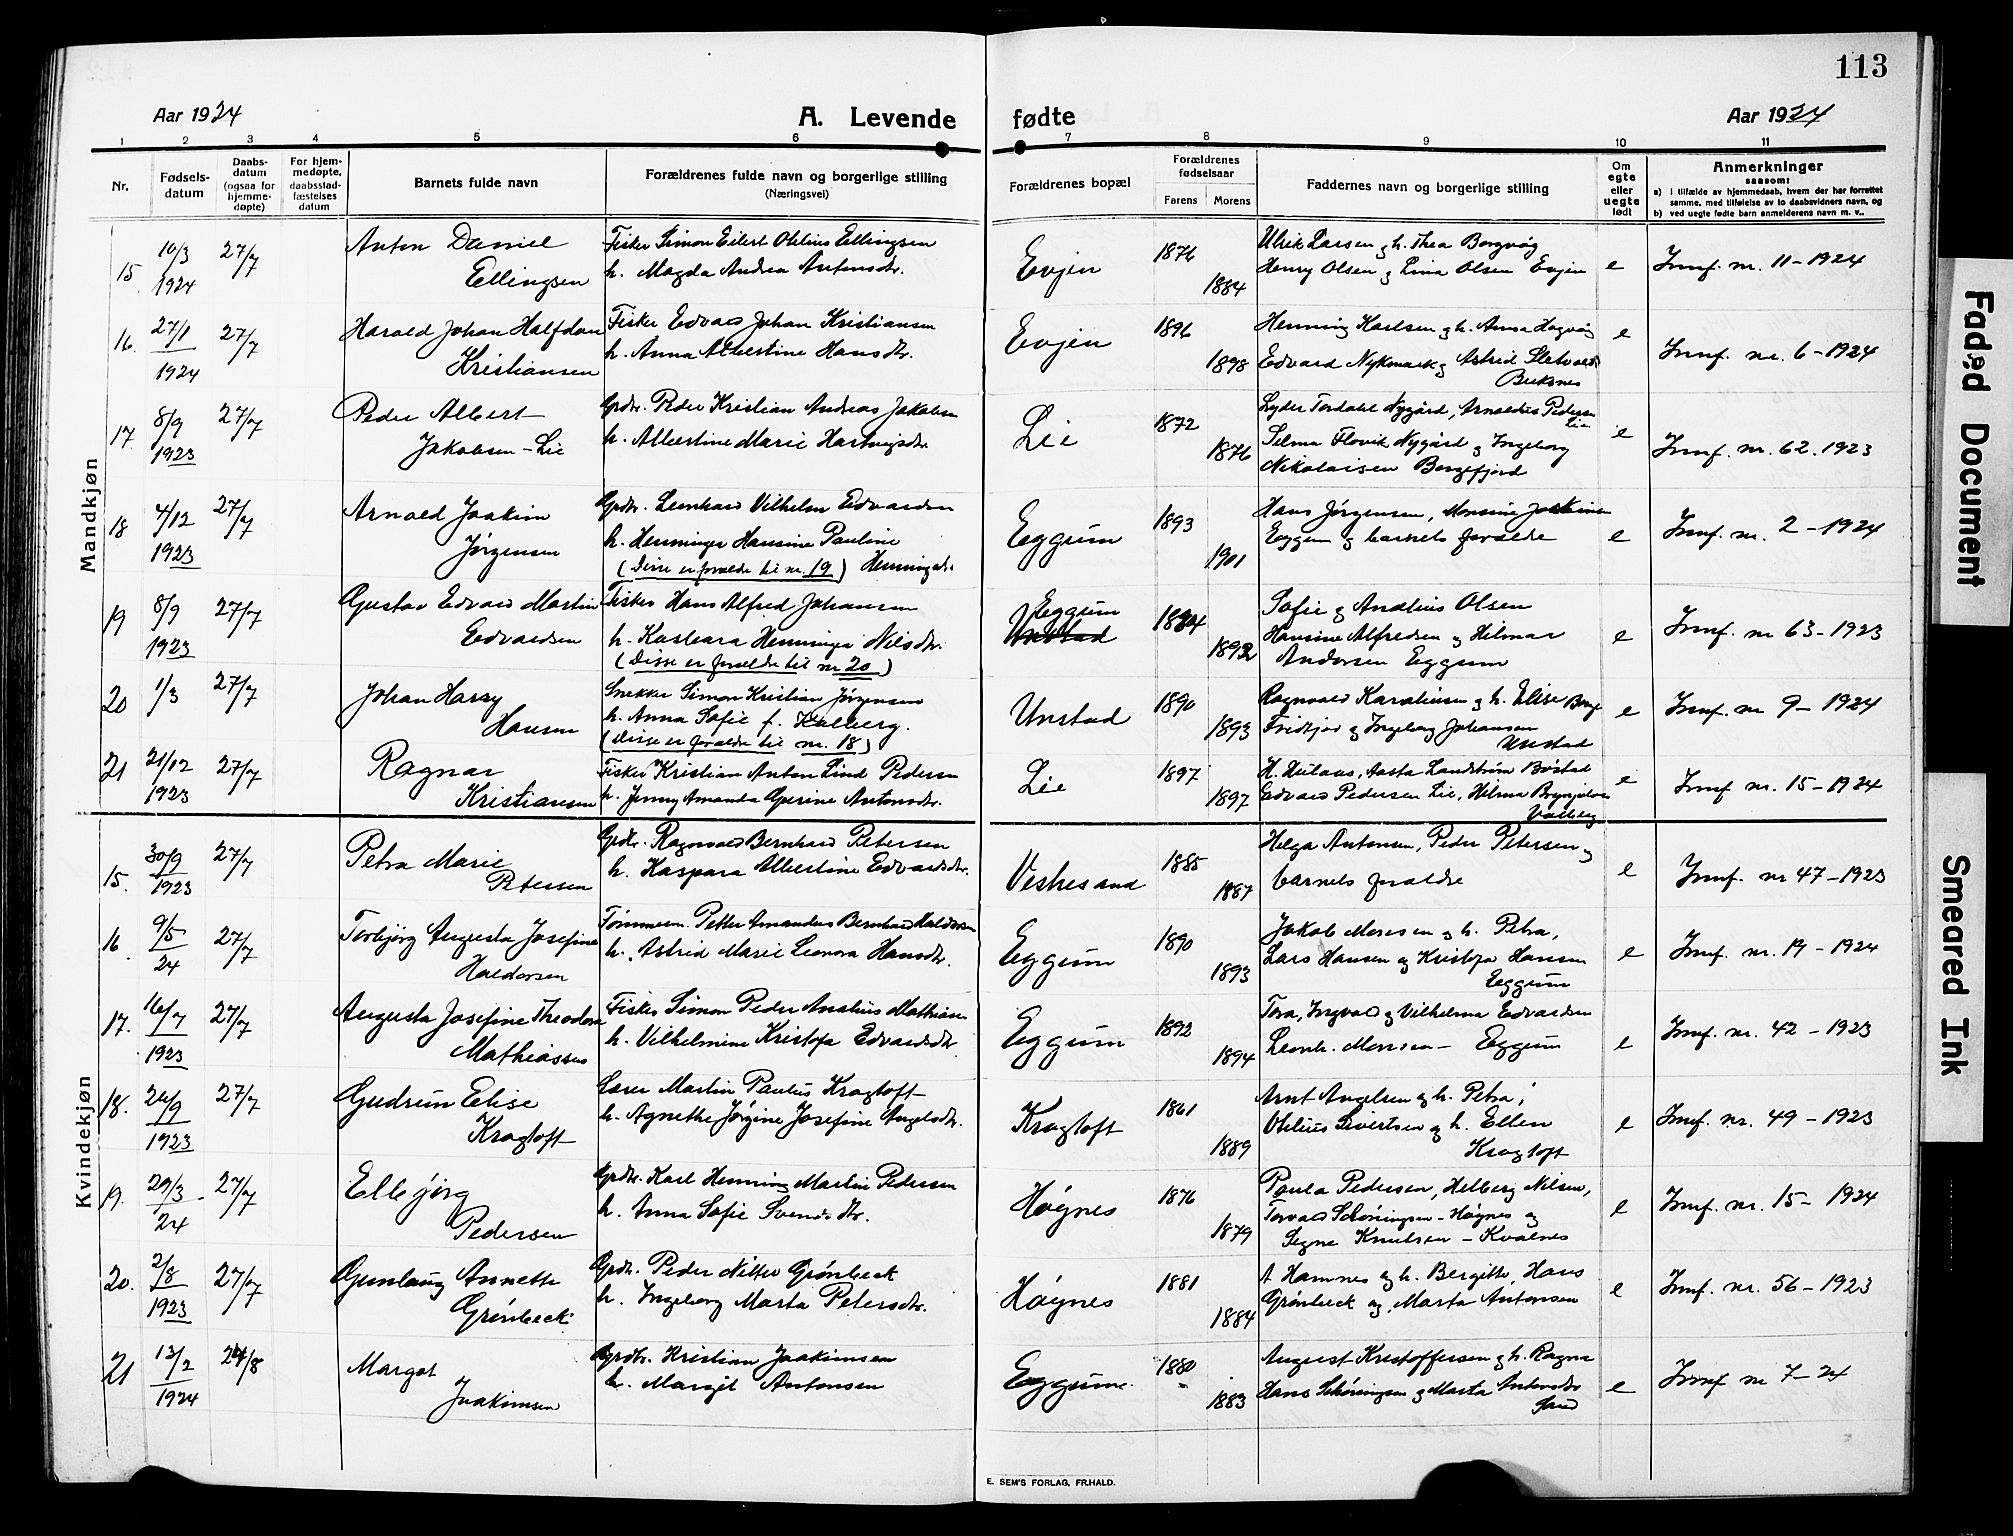 113
Aar 1924
A. Levende
fødte
Aar 1924
1 2 3 4 5 6 7 8 9 10 11
Nr.
Fødsels-
datum
Daabs-
datum
(ogsaa for
hjemme-
døpte)
For hjem-
medøpte,
daabsstad-
fæstelses
datum
Barnets fulde navn
Forældrenes fulde navn og borgerlige stilling
(Næringsvei)
Forældrenes bopæl
Forældrenes
fødselsaar
Farens
Morens
Faddernes navn og borgerlige stilling
Om
egte
eller
uegte
født
Anmerkninger
saasom:
a) i tilfælde av hjemmedaab, hvem der har forrettet
samme, med tilføielse av to daabsvidners navn, og
b) ved uegte fødte barn anmelderens navn m. v..
Mandkjøn
15.
10/3
1924
27/7
Anton Daniel
Ellingsen
Fisker Simon Eilert Otelius Ellingsen
h. Magda Andrea Antonsdtr.
Evjen
1876
1884
Ulrik Larsen og h. Thea Borgvåg
Henry Olsen og Lina Olsen Evjen
e
Innf. nr. 11-1924
16.
27/1
1924
27/7
Harald Johan Halfdan
Kristiansen
Fisker Edvard Johan Kristiansen
h. Anna Albertine Hansdtr.
Evjen
1896
1898
Henning Karlsen og h. Anna Hagvåg
Edvard Nykmark og Astrid Sletvold
Buksnes
e
Innf. nr. 6-1924
17.
8/9
1923
27/7
Peder Albert
Jakobsen-Lie
Grdbr. Peder Kristian Andreas Jakobsen
h. Albertine Marie Hartvigsdtr.
Lie
1872
1876
Lyder Tordahl Nygård, Arnoldus Pedersen
Lie
Selma Flovik Nygård og Ingeborg
Nikolaisen Borgefjord
e
Innf. nr. 62. 1923
18
4/12
1923
27/7
Arnold Joakim
Jørgensen
Grdbr. Leonhard Vilhelm Edvardsen
h. Henninga Hansine Pauline
(Disse er forældre til nr. 19) Henningsdtr.
Eggum
1893
1901
Hans Jørgensen, Monsine Joakimsen
Eggum og barnets forældre
e
Innf. nr. 2-1924
19
8/9
1923
27/7
Gustav Edvard Martin
Edvardsen
Fisker Hans Alfred Johansen
h. Kaspara Henninga Nilsdtr.
(Disse er forældre til nr 20)
Eggum
Unstad
1884
1892
Sofie og Analius Olsen
Hansine Alfredsen og Hilmar
Andersen Eggum
e
Innf. nr 63-1923
20
1/3
27/7
Johan Harry
Hansen
Snekker Simon Kristian Jørgensen
h. Anna Sofie f. Kalberg.
(Disse er forældre til nr. 18)
Unstad
1890
1893
Ragnvald Karolinsen og h. Elise Borg
Fridtjov og Ingeborg Johansen
Unstad
e
Innf. nr 9-1924
21
21/12
1923
27/7
Ragnar
Kristiansen
Fisker Kristian Anton Lind Pedersen
h. Jenny Amanda Gerine Antonsdtr.
Lie
1897
1897
H. Hulaas, Aasta Landstrøm Bøstad
Edvard Pedersen Lie, Hilma Brynjulvsen
Valberg
e
Innf nr. 15-1924
Kvindekjøn
15.
30/9
1923
27/7
Petra Marie
Petersen
Grdbr. Ragnvald Bernhard Petersen
h. Kaspara Albertine Edvardsdtr.
Vestresand
1885
1887
Helga Antonsen, Peder Petersen og
barnets forældre
e
Innf. nr 47-1923
16.
9/5
24
27/7
Torbjørg Augusta Josefine
Haldorsen
Tømmerm. Petter Amandus Bernhard Haldorsen
h. Astrid Marie Leonora Hansdtr.
Eggum
1890
1893
Jakob Monsen og h. Petra,
Lars Hansen og Kristofa Hansen
Eggum
e
Innf. nr. 19-1924
17.
16/7
1923
27/7
Augusta Josefine Theodora
Mathiassen
Fisker Simon Peder Analius Mathiasen
h. Vilhelmine Kristofa Edvardsdtr.
Eggum
1892
1894
Tora, Ingvald og Vilhelma Edvardsen
Leonh. Monsen - Eggum
e
Innf. nr. 42-1923
18.
26/9
1923
27/7
Gudrun Elise
Kragtoft
Lærer Martin Paulus Kragtoft
h. Agnethe Jørgine Josefine Angelsdtr.
Kragtoft
1861
1889
Arnt Angelsen og h. Petra,
Otelius Sivertsen og h. Ellen
Kragtoft
e
Innf. nr. 49-1923
19.
29/3
24
27/7
Ellbjørg
Pedersen
Grdbr. Karl Henning Martin Pedersen
h. Anna Sofie Svendsdtr.
Høynes
1876
1879
Paula Pedersen, Helberg Nilsen,
Torvald Schøningsen - Høynes og
Signe Knutsen - Kvalnes
e
Innf. nr. 15-1924
20.
2/8
1923
27/7
Gunlaug Annette
Grønbeck
Grdbr. Peder Nitter Grønbeck
h. Ingeborg Marta Petersdtr.
Høynes
1881
1884
A. Hamnes og h. Bergitte, Hans
Grønbeck og Marta Antonsen
e
Innf. nr. 56-1923
21
13/2
1924
24/8
Margot
Joakimsen
Grdbr. Kristian Joakimsen
h. Margit Antonsen
Eggum
1880
1883
August Kristoffersen og h. Ragna
Hans Schøningsen og Marta Antonsdtr
Sand
e
Innf nr 7-24
E. SEM'S FORLAG, FR.HALD.
Faded Document
Smeared Ink